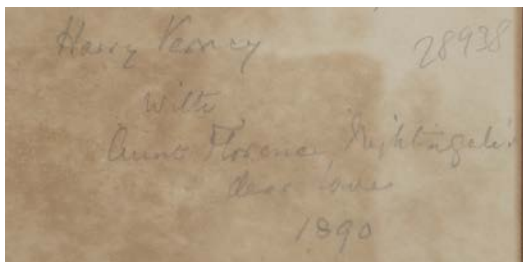 Harry Verney 28938
with
Aunt Florence Nightingale's
dear love
1890